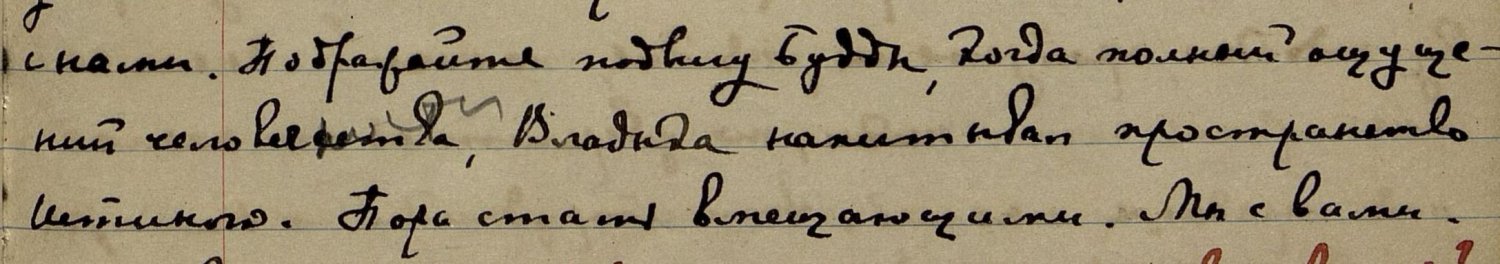 с нами. Подражайте подвигу Будды, когда полный ощуще-
ний человечества, Владыка напитывал пространство
Истиною. Пора стать вмещающими. Мы с вами.